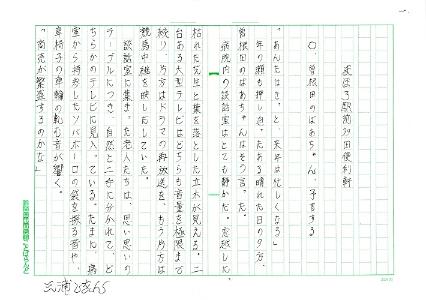 まほろ駅前多田便利軒
〇、曽根田のばあちゃん、予言する
「あんたはきっと、来年は忙しくなる」
年の瀬も押し迫ったある晴れた日の夕方、
曽根田のばあちゃんはそう言った。
病院内の談話室はとても静かだ。窓越しに
枯れた芝生と葉を落とした立木が見える。二
台ある大型テレビはどちらも音量を極限まで
絞り、片方はドラマの再放送を、もう片方は
競馬中継を映しだしていた。
談話室に集まった老人たちは、思い思いの
テーブルにつき、自然と二手に分かれて、ど
ちらかのテレビに見入っている。たまに、病
室から持参したソバボーロの袋を探る音や、
車椅子の車輪の軋む音が響く。
「商売が繁盛するのかな」
三浦しをん